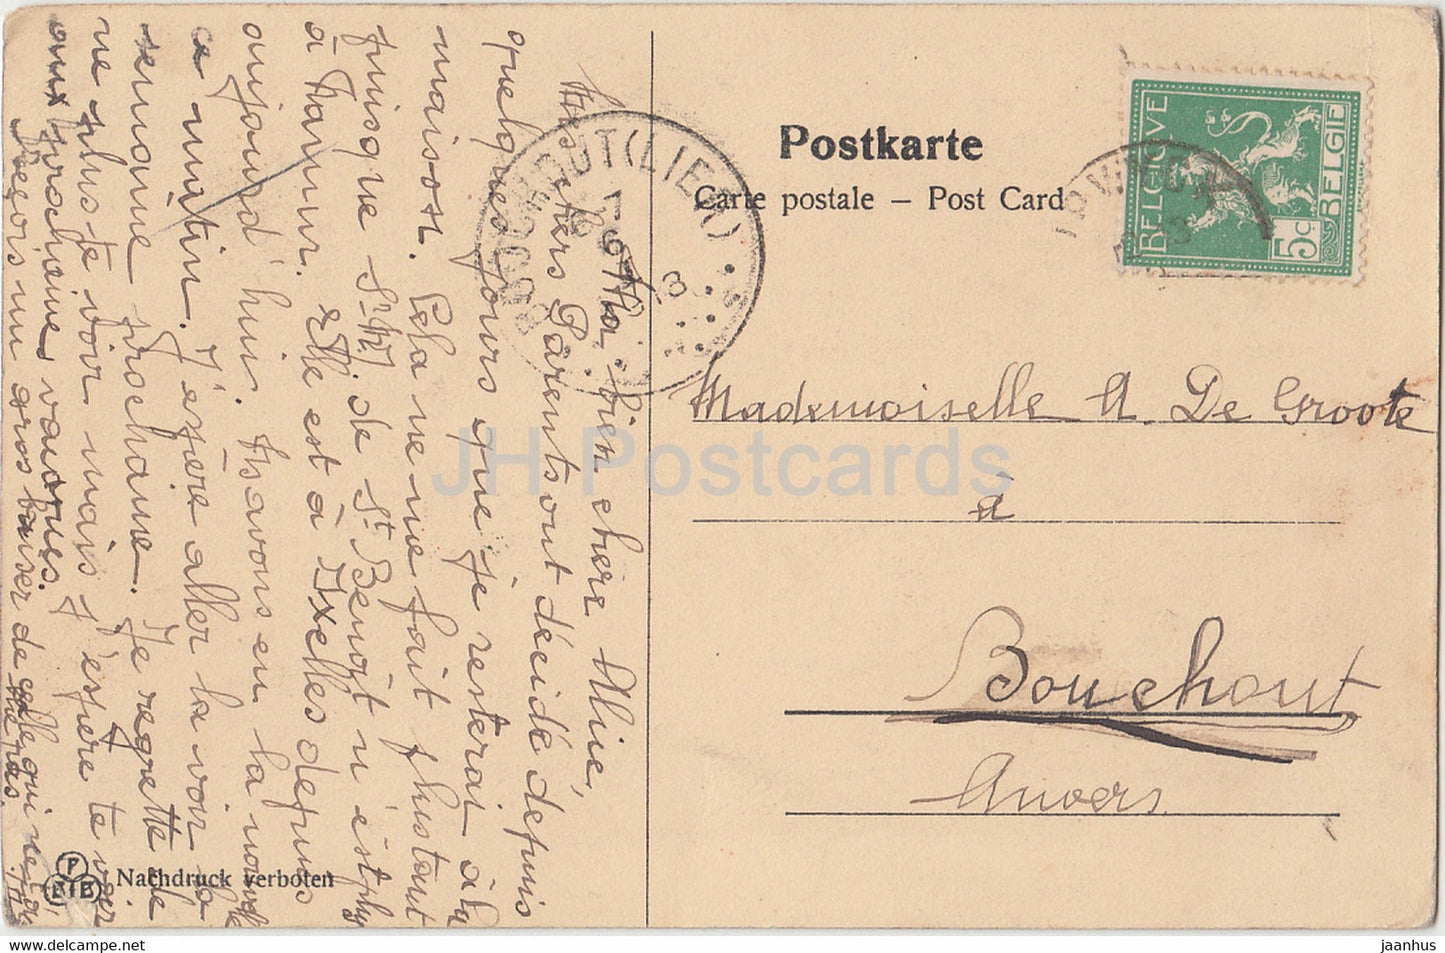 Ma bien chère Aline,
Mes chers Parents ont décidé depuis
quelques jours que je resterai à la
maison. Cela ne me fait pourtant
puisque Sr M. de St Benoît n'est plus
à Namur. Elle est à Ixelles depuis
aujourd'hui. Ns avons eu la nouvelle
ce matin. J'espère aller la voir la
semaine prochaine. Je regrette de
ne plus te voir mais j'espère te voir
aux prochaines vacances.
Reçois un gros baiser de celle qui ne t'ou-
blie pas.
Postkarte
Carte postale – Post Card
BELGIQUE
BELGIË
5c
BOUCHOUT (LIER)
Mademoiselle A. De Groote
à
Bouchout
Anvers
Nachdruck verboten
JH Postcards
jaanhus